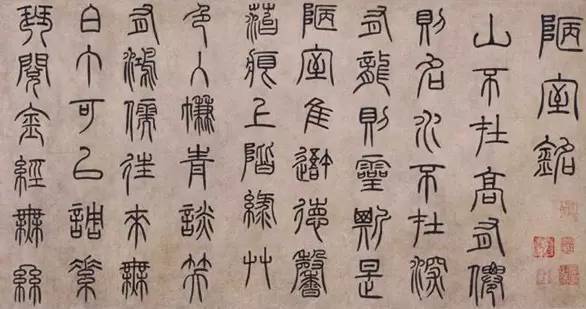 陋室銘
山不在高有僊
則名水不在深
有龍則靈斯是
陋室隹吾德馨
苔痕上階綠艸
色入簾青談笑
有鴻儒往來無
白丁可以調素
琴閱金經無絲